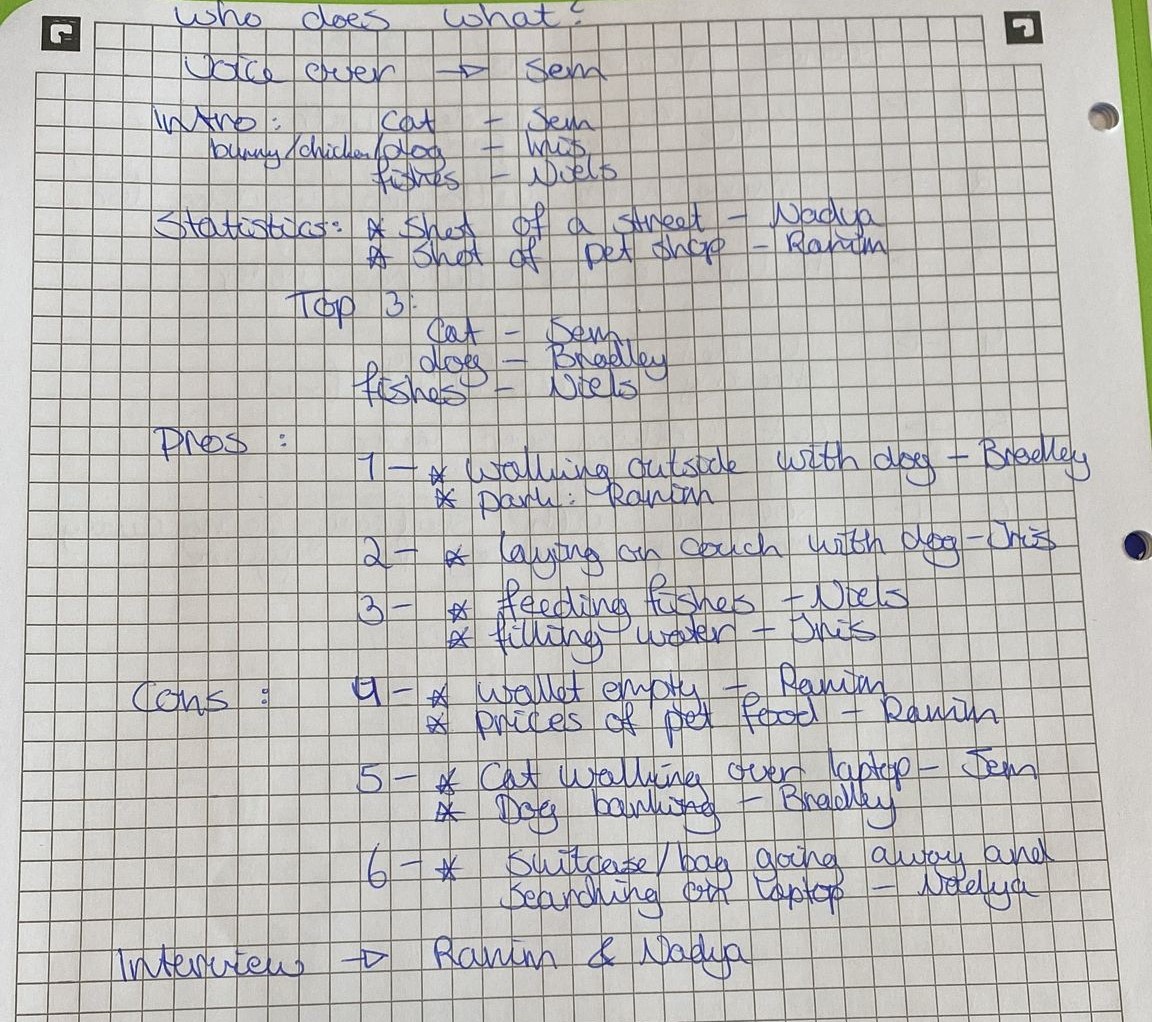 Who does what?
Voice over → Sem
Intro: Cat - Sem
bunny/chicken/dog - Iris
fishes - Niels
Statistics: * Shot of a street - Nadya
* Shot of pet shop - Ranim
Top 3:
Cat - Sem
dog - Bradley
fishes - Niels
Pros :
1- * Walking outside with dog - Bradley
* park: Ranim
2- * laying on couch with dog - Iris
3- * feeding fishes - Niels
* filling water - Iris
Cons : 4- * wallet empty - Ranim
* prices of pet food - Ranim
5- * Cat walking over laptop - Sem
* Dog barking - Bradley
6- * Suitcase/bag going away and
searching on laptop - Nadya
Interview → Ranim & Nadya